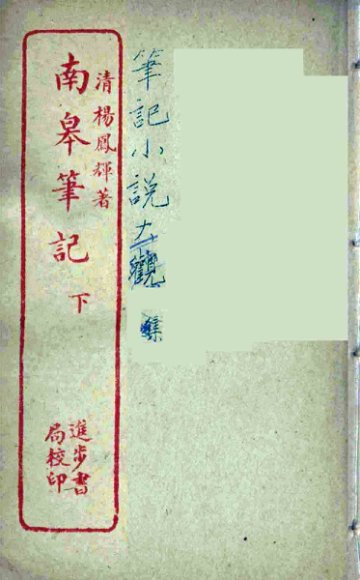 筆記小説大觀
清楊鳳輝著
南皋筆記
下
進步書
局校印